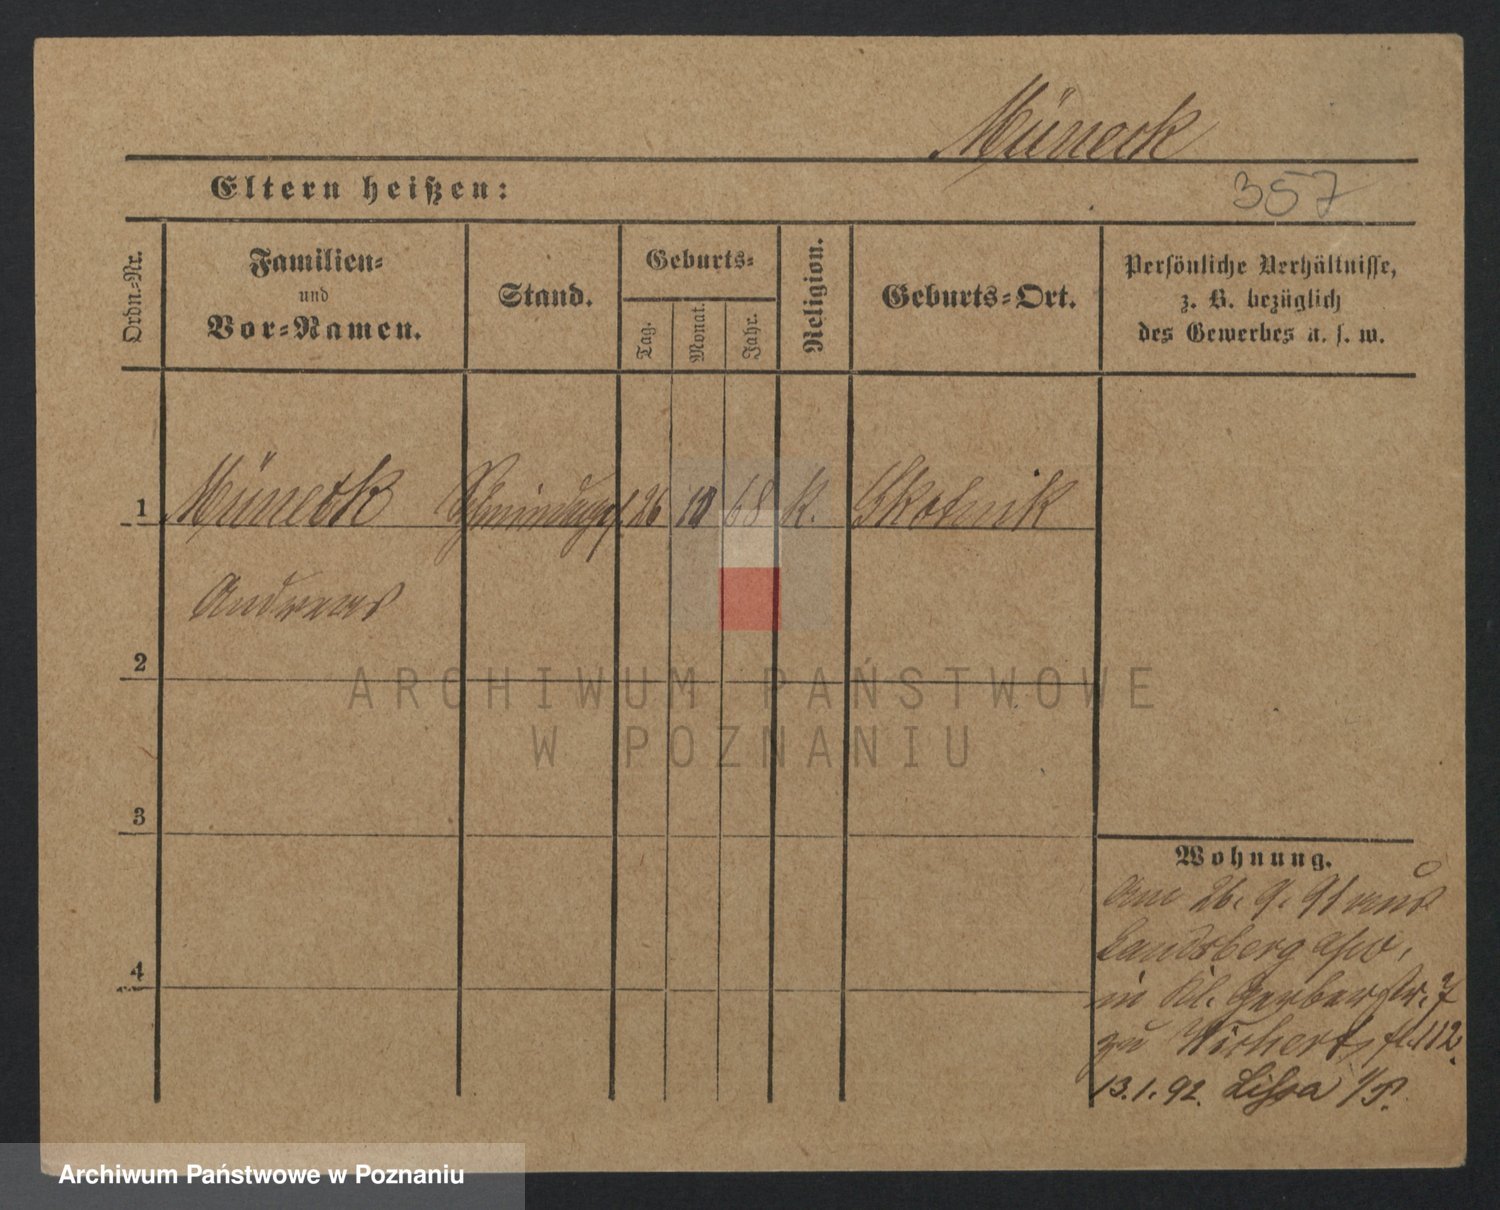 Müneck
Eltern heißen:
357
Ordn.-Nr.
Familien-
und
Vor-Namen.
Stand.
Geburts-
Tag.
Monat.
Jahr.
Religion.
Geburts-Ort.
Persönliche Verhältnisse,
z. B. bezüglich
des Gewerbes u. s. w.
1 Müneck 26 10 68 K. Skotnik
Andreas
2
3
4
Wohnung.
Am 26. 9. 91 aus
Landsberg
in Kl. Gerberstr. 7
zu Wichert, 112.
13.1.92. Lissa i/P.
ARCHIWUM PAŃSTWOWE
W POZNANIU
Archiwum Państwowe w Poznaniu